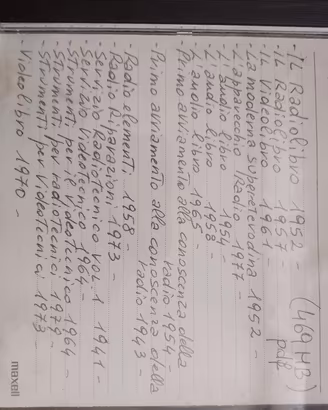 - IL Radiolibro 1952 - (469 MB)
- IL Radiolibro 1957 pdf
- IL Vidiolibro 1961 -
- La moderna supereterodina 1952 -
- L'apparecchio Radio 1977 -
- L'audio libro 1954 -
- L'audio libro 1958
- L'audio libro 1965
- Primo avviamento alla conoscenza della
radio 1954 -
- Primo avviamento alla conoscenza della
radio 1943 -
- Radio elementi 1958 -
- Radio Riparazioni 1973 -
- Servizio Radiotecnico vol 1 1941 -
- Servizio Videotecnico 1964 -
- Strumenti per il Videotecnico 1964 -
- Strumenti per radiotecnici 1979
- Strumenti per videotecnici 1973 -
- Videolibro 1970 -
maxell